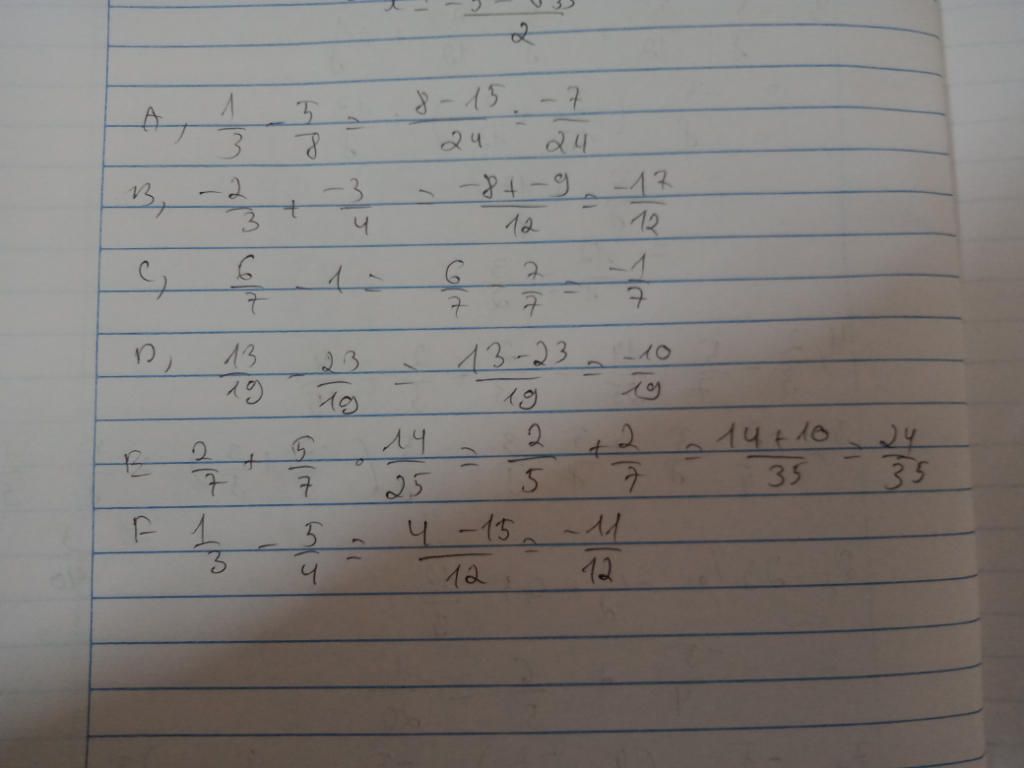 2
A, 1/3 - 5/8 = (8 - 15)/24 = -7/24
B, -2/3 + -3/4 = (-8 + -9)/12 = -17/12
C, 6/7 - 1 = 6/7 - 7/7 = -1/7
D, 13/19 - 23/19 = (13 - 23)/19 = -10/19
E 2/7 + 5/7 · 14/25 = 2/5 + 2/7 = (14 + 10)/35 = 24/35
F 1/3 - 5/4 = (4 - 15)/12 = -11/12